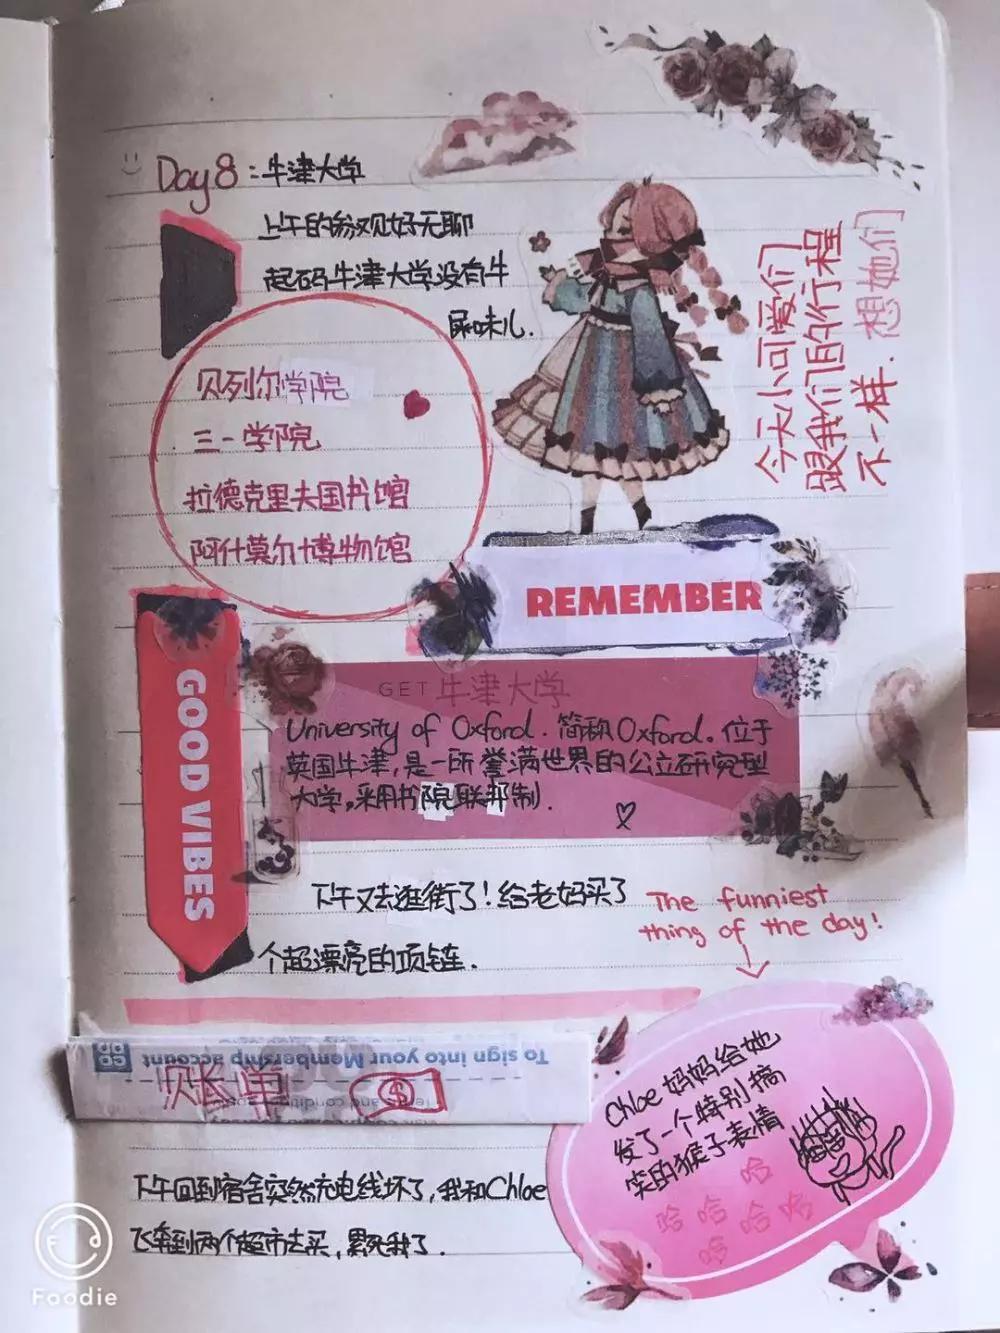 Day 8：牛津大学
上午的参观好无聊
起码牛津大学没有牛
屎味儿.
今天小可爱们
跟我们的行程
不一样.想她们
贝列尔学院
三一学院
拉德克里夫图书馆
阿什莫尔博物馆
REMEMBER
GOOD VIBES
GET 牛津大学
University of Oxford. 简称Oxford。位于
英国牛津，是一所誉满世界的公立研究型
大学，采用书院联邦制.
下午又去逛街了！给老妈买了
个超漂亮的项链.
The funniest
thing of the day!
To sign into your Membership account
账单
$
Chloe妈妈给她
发了一个特别搞
笑的猴子表情
哈
哈哈哈哈
哈
下午回到宿舍突然充电线坏了，我和Chloe
飞奔到两个超市去买，累死我了.
Foodie